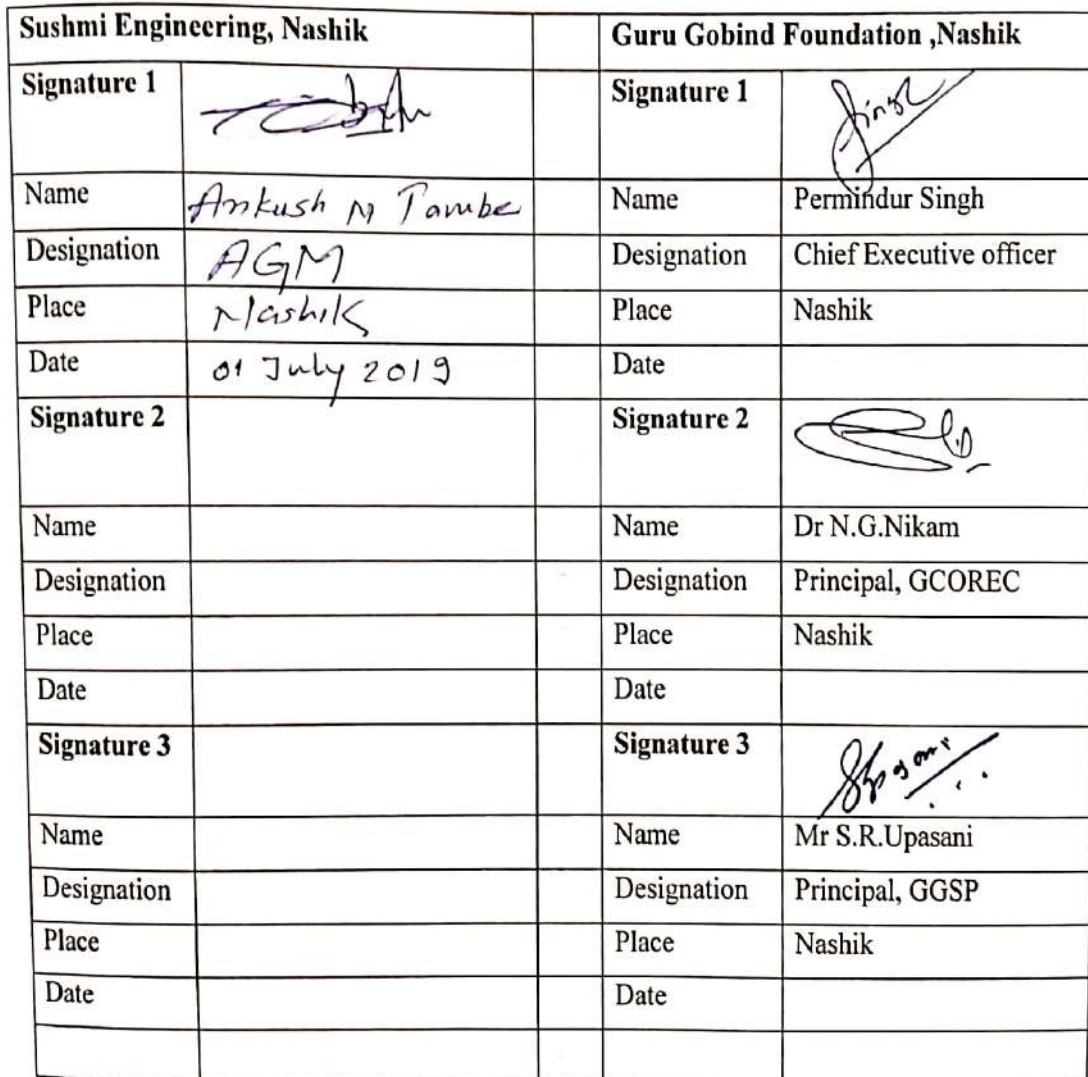 Sushmi Engineering, Nashik Guru Gobind Foundation ,Nashik
Signature 1 Signature 1 Singh
Name Ankush N Tambe Name Permindur Singh
Designation AGM Designation Chief Executive officer
Place Nashik Place Nashik
Date 01 July 2019 Date
Signature 2 Signature 2
Name Name Dr N.G.Nikam
Designation Designation Principal, GCOREC
Place Place Nashik
Date Date
Signature 3 Signature 3
Name Name Mr S.R.Upasani
Designation Designation Principal, GGSP
Place Place Nashik
Date Date